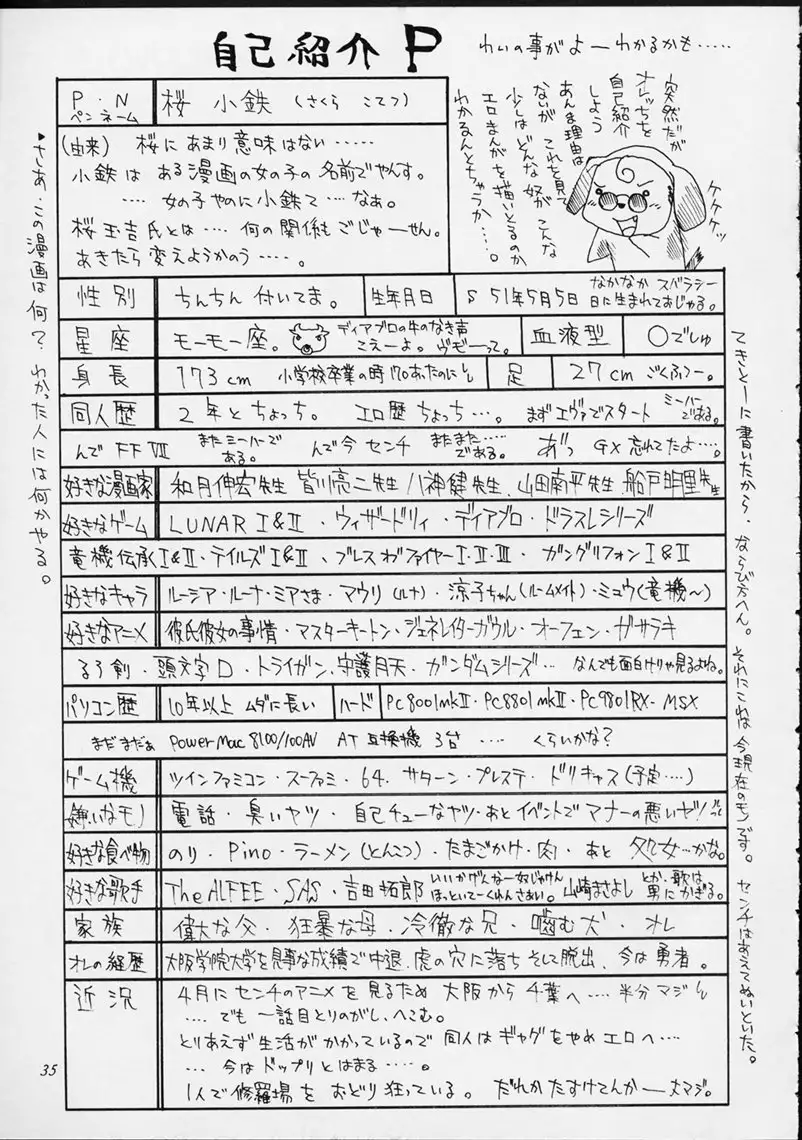 自己紹介P
わいの事がよーわかるかも・・・・・
突然だが
オレっちを
自己紹介
しよう
あんま理由は
ないが これを見て
少しはどんな奴が こんな
エロまんがを描いとるのか
わかるんとちゃうか・・・・。
ケケケッ
P・N
ペンネーム
桜 小鉄 (さくら こてつ)
(由来) 桜にあまり意味はない・・・・・
小鉄は ある漫画の女の子の名前でやんす。
・・・・ 女の子やのに小鉄て・・・・なぁ。
桜玉吉氏とは・・・・ 何の関係もごじゃーせん。
あきたら変えようかのう・・・・。
♥さあ、この漫画は何?わかった人には何かやる。
性別 ちんちん付いてま。 生年月日 S51年5月5日 なかなか スバラシー
日に生まれておじゃる。
星座 モーモー座。 ディアブロの牛のなき声
こえーよ。ヴモーって。 血液型 ○でしゅ
身長 173cm 小学校卒業の時170あったのに 足 27cm ごくふつー。
同人歴 2年とちょっち。 エロ歴ちょっち・・・。 まずエヴァでスタート ミーハー
である。
んでFFⅦ またミーハーで
ある。 んで今 センチ またまた・・・・
である。 あっ GX忘れてたよ・・・・。
好きな漫画家 和月伸宏先生 皆川亮二先生 八神健先生、山田南平先生 船戸明里先生
好きなゲーム LUNARⅠ&Ⅱ・ウィザードリィ・ディアブロ・ドラスレシリーズ
竜機伝承Ⅰ&Ⅱ・テイルズⅠ&Ⅱ、ブレスオブファイヤーⅠ・Ⅱ・Ⅲ・ ガングリフォンⅠ&Ⅱ
好きなキャラ ルーシア・ルーナ・ミアさま・マウリ(ルナ)・涼子ちゃん(ルームメイト)・ミュウ(竜機〜)
好きなアニメ 彼氏彼女の事情・マスターキートン・ジェネレイターガウル・オーフェン・ガサラキ
るろ剣・頭文字D・トライガン、守護月天・ガンダムシリーズ・・・ なんでも面白けりゃ見るよね。
パソコン歴 10年以上 ムダに長い ハード PC8001mkⅡ・PC8801mkⅡ・PC9801RX・MSX
まだまだぁ Power Mac 8100/100AV AT互換機 3台 ・・・・ くらいかな?
ゲーム機 ツインファミコン・スーファミ・64、サターン・プレステ・ドリキャス(予定・・・・)
嫌いなモノ 電話・臭いヤツ・自己チューなヤツ・あとイベントでマナーの悪いヤツ!
好きな食べ物 のり・Pino・ラーメン(とんこつ)・たまごかけ・肉・あと 処女・・・かな。
好きな歌手 The ALFEE・SAS・吉田拓郎 いいかげんなー奴じゃけん
ほっといてーくれんさあい。 山崎まさよし とか、歌は
男にかぎる。
家族 偉大な父・狂暴な母・冷徹な兄・噛む犬・オレ
オレの経歴 大阪学院大学を見事な成績で中退、虎の穴に落ち そして脱出、今は勇者。
近況 4月にセンチのアニメを見るため 大阪から千葉へ・・・・半分マジ
・・・・でも 一話目とりのがし、へこむ。
とりあえず生活がかかっているので 同人はギャグをやめエロへ・・・・
・・・ 今はドップリとはまる・・・・・。
1人で修羅場を おどり狂っている。 だれかたすけてんかー 大マジ。
てきとーに書いたから、ならび方へん。それにこれは今現在のモンです。センチはあえてぬいといた。
35